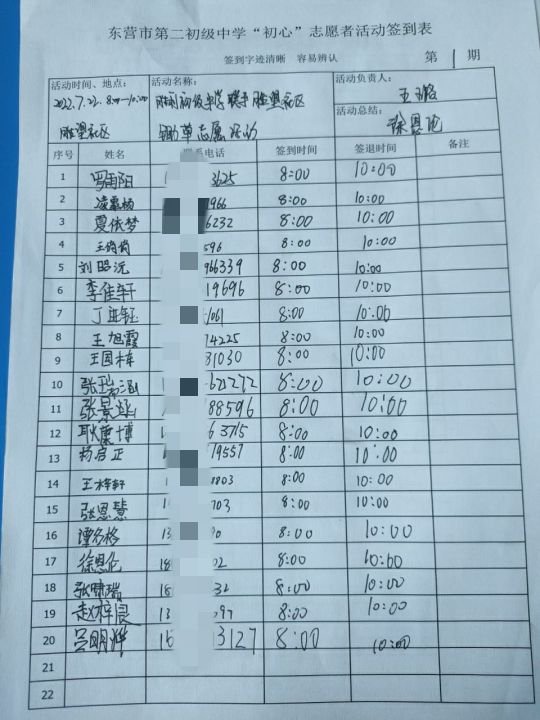 东营市第二初级中学“初心”志愿者活动签到表
签到字迹清晰 容易辨认 第 1 期
活动时间、地点： 活动名称： 活动负责人：
2022.7.22. 8:00-10:00 王
活动总结：
锄草志愿活动 徐恩伦
社区
序号 姓名 联系电话 签到时间 签退时间 备注
1 罗雨阳 3625 8:00 10:00
2 966 8:00 10:00
3 夏依梦 6232 8:00 10:00
4 王 596 8:00 10:00
5 刘昭沅 966339 8:00 10:00
6 李佳轩 19696 8:00 10:00
7 丁 1061 8:00 10:00
8 王旭霞 14225 8:00 10:00
9 王国栋 31030 8:00 10:00
10 张 621272 8:00 10:00
11 张景 88596 8:00 10:00
12 耿康博 63715 8:00 10:00
13 杨启正 19557 8:00 10:00
14 王梓轩 8803 8:00 10:00
15 张恩慧 1 703 8:00 10:00
16 谭名格 13 90 8:00 10:00
17 徐恩伦 18 02 8:00 10:00
18 张啸瑞 18 32 8:00 10:00
19 赵梓良 13 97 8:00 10:00
20 吕明烨 15 3127 8:00 10:00
21
22